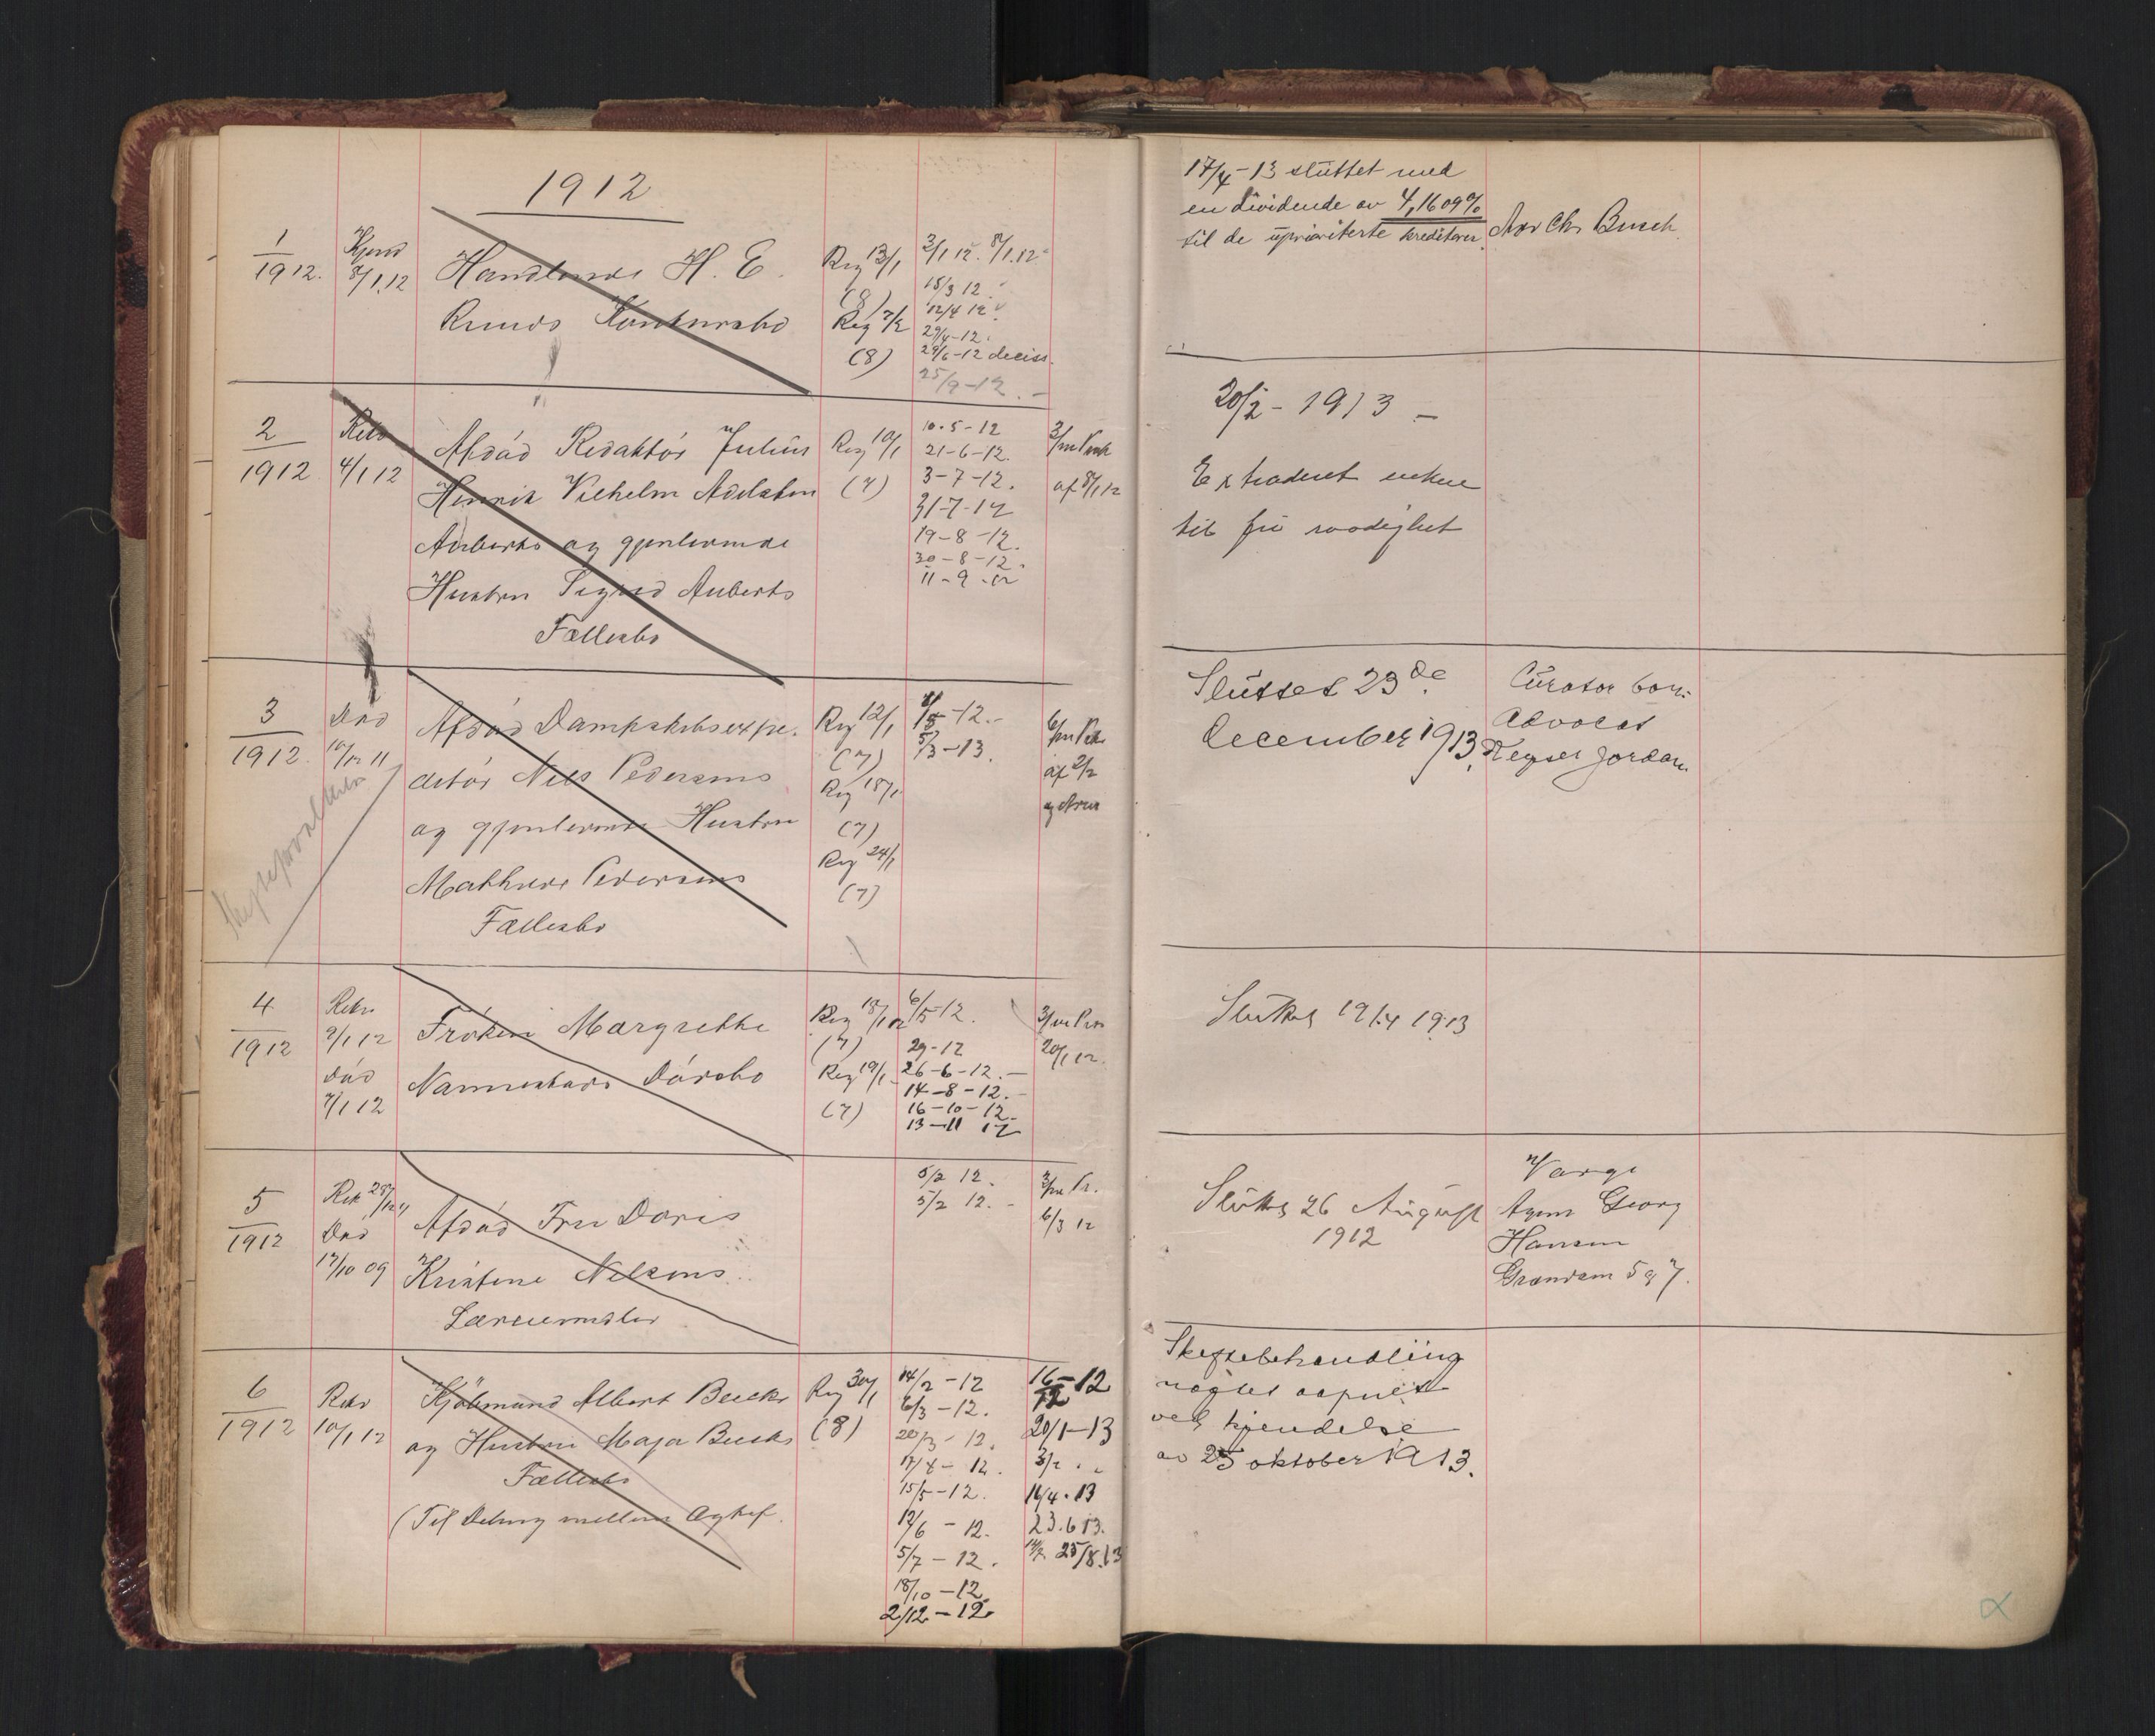 1912
1
1912.
Kjend
8/1.12
Handlende H. E.
Ruuds Konkursbo
Reg 13/1
(8)
Reg 7/2
(8)
3/1 12. 8/1.12
15/3 12
12/4 12
29/4-12.
29/6-12 deciss.
25/9-12.-
17/4-13 sluttet med
en dividende av 4,1609%
til de uprioriterte kreditorer.
Chr. Busch
2
1912
4/1 12
Afdød Redaktør Julius
Henrik Vilhelm Adelsten
Auberts og gjenlevende
Hustru Sigrid Auberts
Fællesbo
Reg 10/1
(7)
10.5-12
21-6-12.
3-7-12.
31-7-12
19-8-12.
30-8-12.
11-9-12
af 8/1 12
20/2-1913-
Extraderet enken
til fri raadighet
3
1912.
Død
10/12 11
Afdød Dampskibsexpe.
ditør Nils Pedersens
og gjenlevende Hustru
Mathilde Pedersens
Fællesbo
Reg 12/1
(7)
Reg 18/1
(7)
Reg 24/1
(7)
-12.-
5/3-13.
af 2/2
Sluttet 23de
December 1913.
Curator bon:
Advocat
Keyser Jordan.
4
1912
9/1 12
Død
7/1 12
Frøken Margrethe
Nannestads Dødsbo
Reg 18/1 12
(7)
Reg 19/1
(7)
6/5-12.
29-12
26-6-12.-
14-8-12.-
16-10-12.
13-11 12
20/1 12.
Sluttet 19/4 1913
5
1912
Død
17/10 09
Afdød Fru Doris
Kristine Nelsens
Særeiemidler
5/2 12.
5/2 12.-
6/3 12
Sluttet 26 August
1912
Værge
Agent Georg
Hansen
Grændsen 5 og 7.
6
1912
10/1 12
Kjøbmand Albert Becks
og Hustru Maja Becks
Fællesbo
(Til Deling mellem Ægtef.
Reg 30/1
(8)
14/2-12
6/3-12.
20/3-12.
17/4-12.
15/5-12.
12/6-12.
5/7-12.
18/10-12.
2/12-12.
16-12
12
20/1-13
3/2
16/4.13
23.6 13.
25/8.13
Skiftebehandling
nægtet aapnet
ved kjendelse
av 25 oktober 1913.